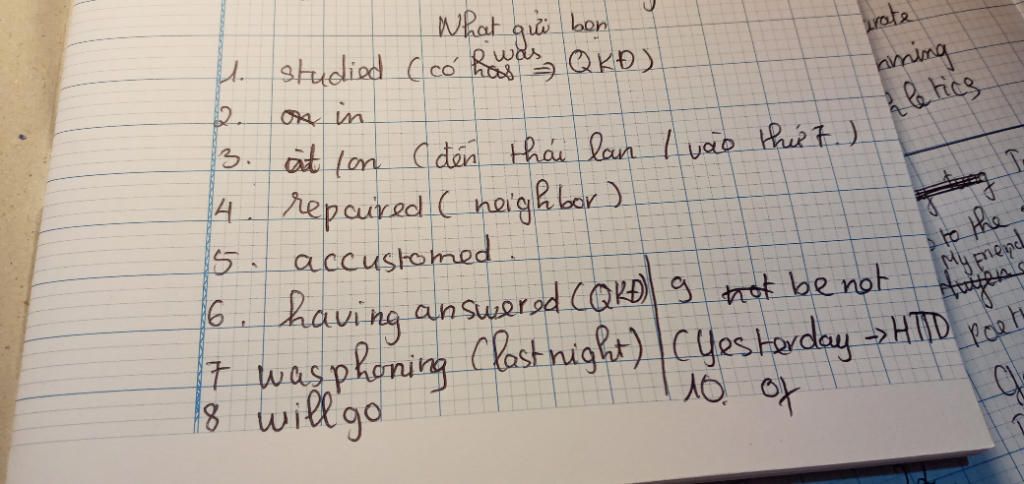 What gửi bạn
1. studied (có was ⇒ QKĐ)
2. in
3. at / on (đến thái lan / vào thứ 7.)
4. repaired ( neighbor)
5. accustomed.
6. having answered (QKĐ)
7 was phoning (last night)
8 will go
9 be not
(yesterday → HTTD
10. of
urate
nming
letics
to the
My friend